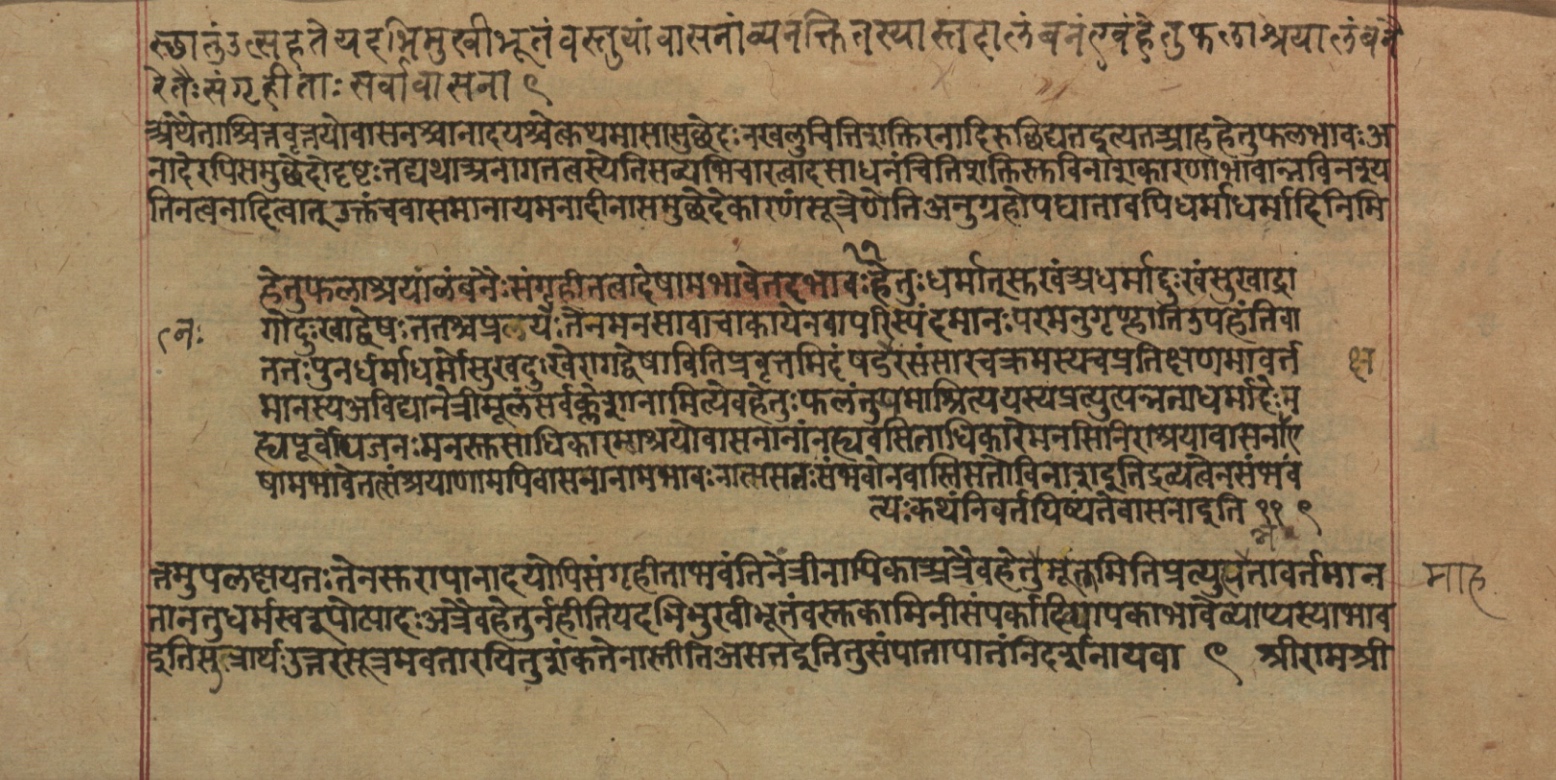 स्छातुंउत्सहतेयदभिमुखीभूतंवस्तुयांवासनांव्यनक्तितस्यास्तदालंबनंएवंहेतुफलाश्रयालंबनै
रेतैःसंगृहीताःसर्वावासना ९
अथैताश्चित्तवृत्तयोवासनाश्चानादयश्चेत्कथमासामुछेदःनखलुचितिशक्तिरनादिरुछिद्यतइत्यतआहहेतुफलभावःअ
नादेरपिसमुछेदोदृष्टःतद्यथाअनागतत्वस्येतिसव्यभिचारत्वादसाधनंचितिशक्तिस्तुविनाशकारणाभावान्नविनश्य
तिनत्वनादित्वात्उक्तंचवासमानायमनादीनासमुछेदेकारणंसूत्रेणेतिअनुग्रहोपघातावपिधर्माधर्मादिनिमि
११
हेतुफलाश्रयालंबनैःसंगृहीतत्वादेषामभावेतदभावःहेतुःधर्मात्सुखंअधर्माद्दुःखंसुखाद्रा
गोदुःखाद्द्वेषःततश्चप्रलयैःतेनमनसावाचाकायेनवापरिस्पंदमानःपरमनुगृण्हातिउपहंतिवा
९नः
ततःपुनर्धर्माधर्मौसुखदुःखेरागद्वेषावितिप्रवृत्तमिदंषडरंसंसारचक्रमस्यचप्रतिक्षणमावर्त
मानस्यअविद्यानेत्रीमूलंसर्वक्लेशानामित्येवहेतुःफलंतुपमाश्रित्ययस्यप्रत्युत्पन्नताधर्मादेःम
ह्यपूर्वोपजनःमनस्तुसाधिकारमाश्रयोवासनानांनह्यवसिताधिकारेमनसिनिराश्रयावासनाए
षामभावेतत्संश्रयाणामपिवासनानामभावःनात्स्यसतःसंभवोनवास्तिसतोविनाशइतिद्रव्यत्वेनसंभवं
त्यःकथंनिवर्तयिष्यंतेवासनाइति ११ ९
त्तमुपलक्षयतःतेनसुरापानादयोपिसंगृहीताभवंतिनेत्रीनायिकाअत्रैवहेतुमूलमितिप्रत्युत्पन्नतावर्तमान माह
तानतुधर्मस्वरूपोत्पादःअत्रैवहेतुर्नहीतियदभिमुखीभूतंवस्तुकामिनीसंपर्कादिव्यापकाभावेव्याप्यस्याभाव
इतिसूत्रार्थःउत्तरसूत्रमवतारयितुंशंकतेनास्तीतिअसतइतितुसंपातापातंनिदर्शनायवा ९ श्रीरामश्री